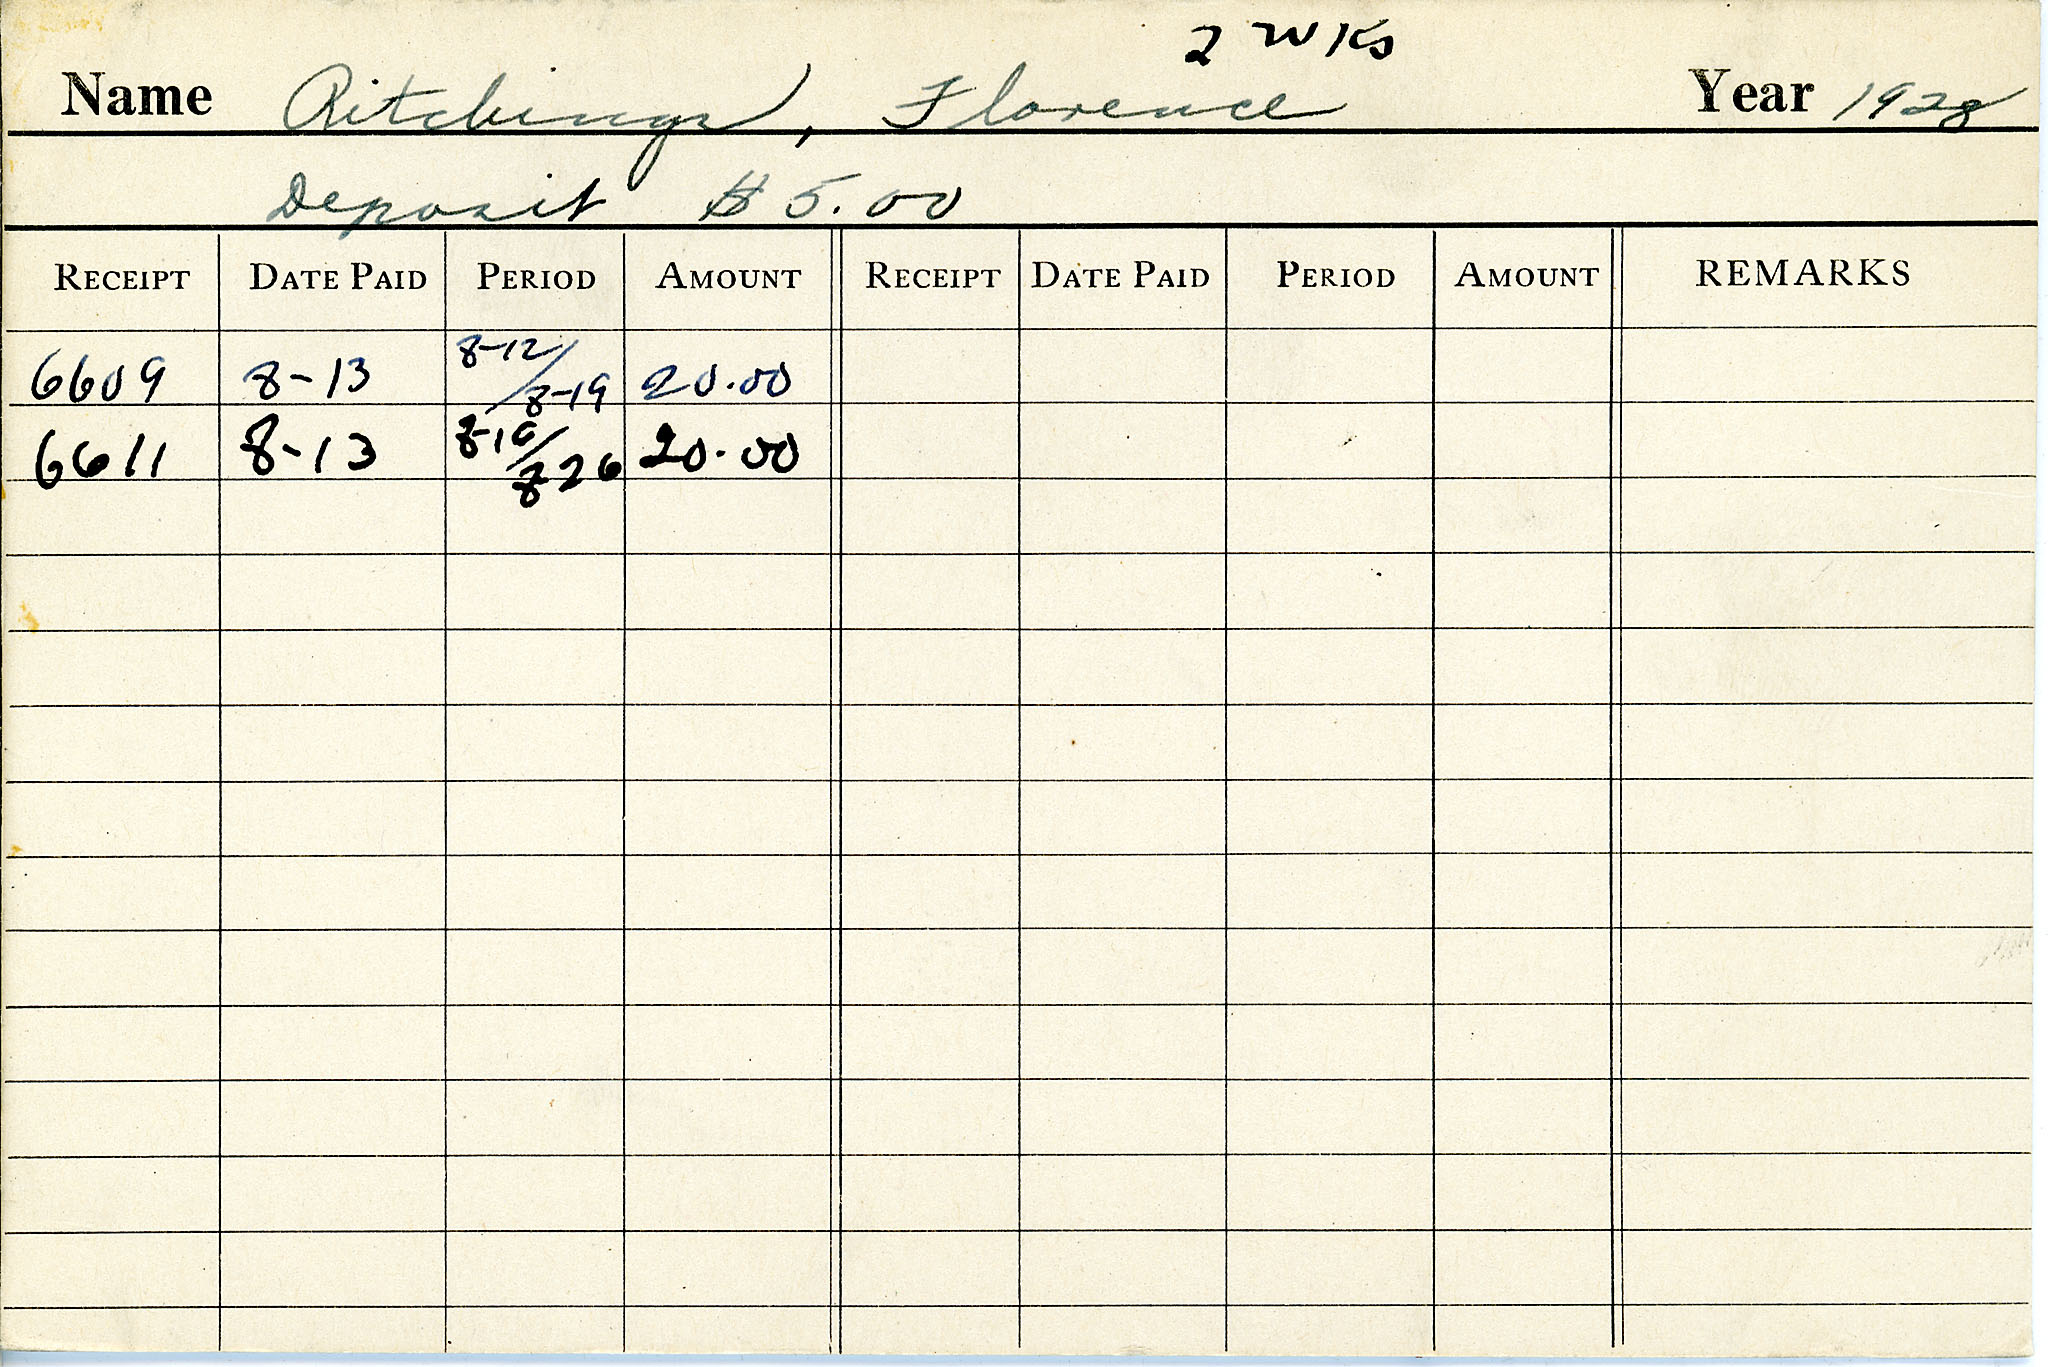 2 WKs
Name Ritchings, Florence Year 1928
Deposit $5.00
RECEIPT DATE PAID PERIOD AMOUNT RECEIPT DATE PAID PERIOD AMOUNT REMARKS
6609 8-13 8-12/8-19 20.00
6611 8-13 8-19/8 26 20.00